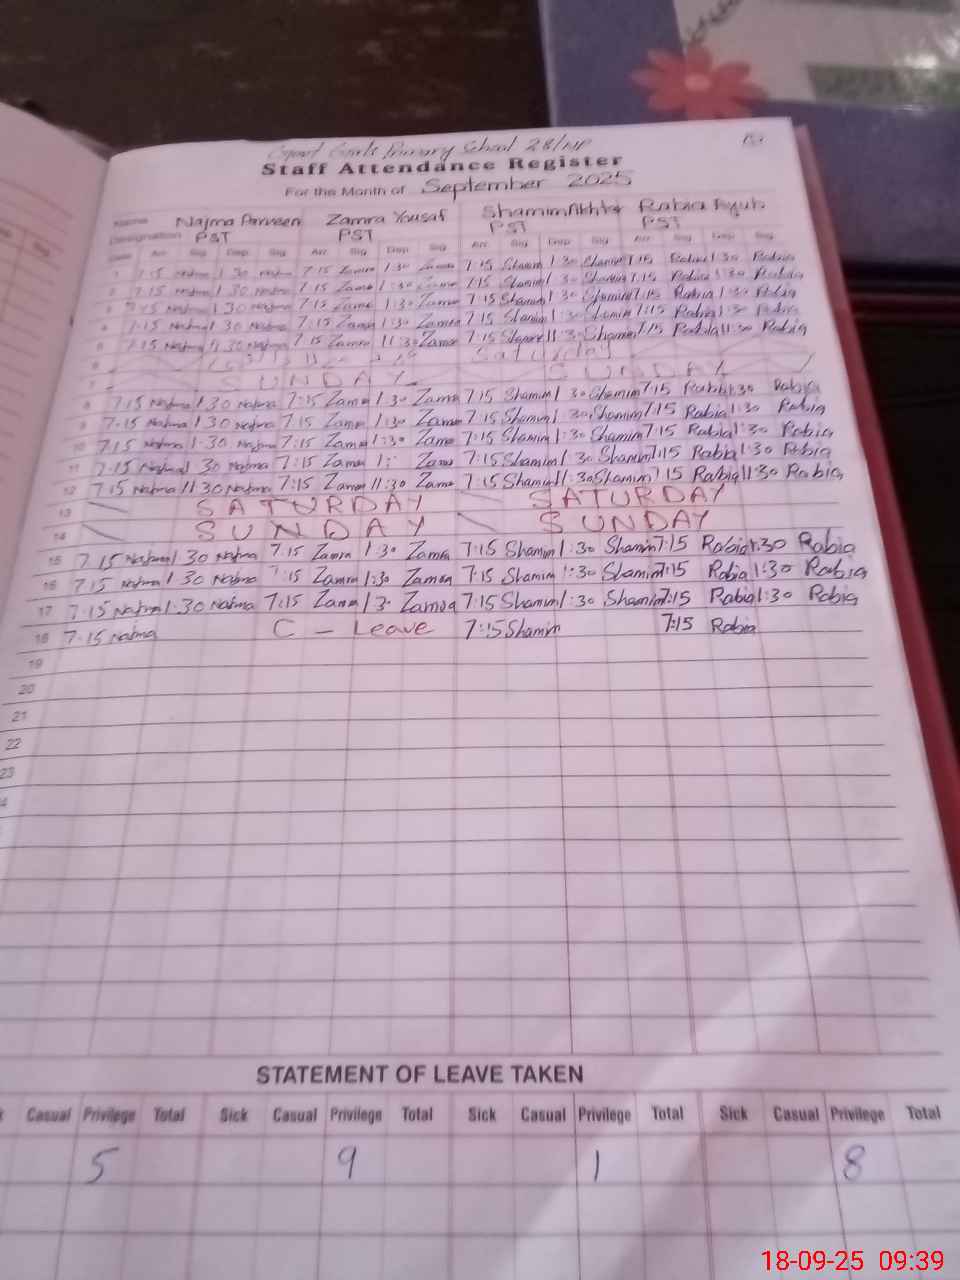 Govt Girls Primary School 28/NP
Staff Attendance Register
For the Month of September 2025
Name Najma Parveen Zamra Yousaf Shamim Akhter Rabia Ayub
Designation PST PST PST PST
Date Arr. Sig Dep. Sig Arr. Sig Dep. Sig Arr. Sig Dep. Sig Arr. Sig Dep. Sig
1 7:15 Najma 1 30 Najma 7:15 Zamra 1:30 Zamra 7:15 Shamim 1:30 Shamim 7:15 Rabia 1:30 Rabia
2 7:15 Najma 1 30 Najma 7:15 Zamra 1:30 Zamra 7:15 Shamim 1:30 Shamim 7:15 Rabia 1:30 Rabia
3 7:15 Najma 1 30 Najma 7:15 Zamra 1:30 Zamra 7:15 Shamim 1:30 Shamim 7:15 Rabia 1:30 Rabia
4 7:15 Najma 1 30 Najma 7:15 Zamra 1:30 Zamra 7:15 Shamim 1:30 Shamim 7:15 Rabia 1:30 Rabia
5 7:15 Najma 11:30 Najma 7:15 Zamra 11:30 Zamra 7:15 Shamim 11:30 Shamim 7:15 Rabia 11:30 Rabia
6 Saturday
7 SUNDAY SUNDAY
8 7:15 Najma 1 30 Najma 7:15 Zamra 1:30 Zamra 7:15 Shamim 1:30 Shamim 7:15 Rabia 1:30 Rabia
9 7:15 Najma 1 30 Najma 7:15 Zamra 1:30 Zamra 7:15 Shamim 1:30 Shamim 7:15 Rabia 1:30 Rabia
10 7:15 Najma 1:30 Najma 7:15 Zamra 1:30 Zamra 7:15 Shamim 1:30 Shamim 7:15 Rabia 1:30 Rabia
11 7:15 Najma 1 30 Najma 7:15 Zamra Zamra 7:15 Shamim 1:30 Shamim 7:15 Rabia 1:30 Rabia
12 7:15 Najma 11:30 Najma 7:15 Zamra 11:30 Zamra 7:15 Shamim 11:30 Shamim 7:15 Rabia 11:30 Rabia
13 SATURDAY SATURDAY
14 SUNDAY SUNDAY
15 7:15 Najma 1 30 Najma 7:15 Zamra 1:30 Zamra 7:15 Shamim 1:30 Shamim 7:15 Rabia 1:30 Rabia
16 7:15 Najma 1:30 Najma 7:15 Zamra 1:30 Zamra 7:15 Shamim 1:30 Shamim 7:15 Rabia 1:30 Rabia
17 7:15 Najma 1:30 Najma 7:15 Zamra 1:30 Zamra 7:15 Shamim 1:30 Shamim 7:15 Rabia 1:30 Rabia
18 7:15 Najma C - Leave 7:15 Shamim 7:15 Rabia
19
20
21
22
23
STATEMENT OF LEAVE TAKEN
Casual Privilege Total Sick Casual Privilege Total Sick Casual Privilege Total Sick Casual Privilege Total
5 9 1 8
18-09-25 09:39